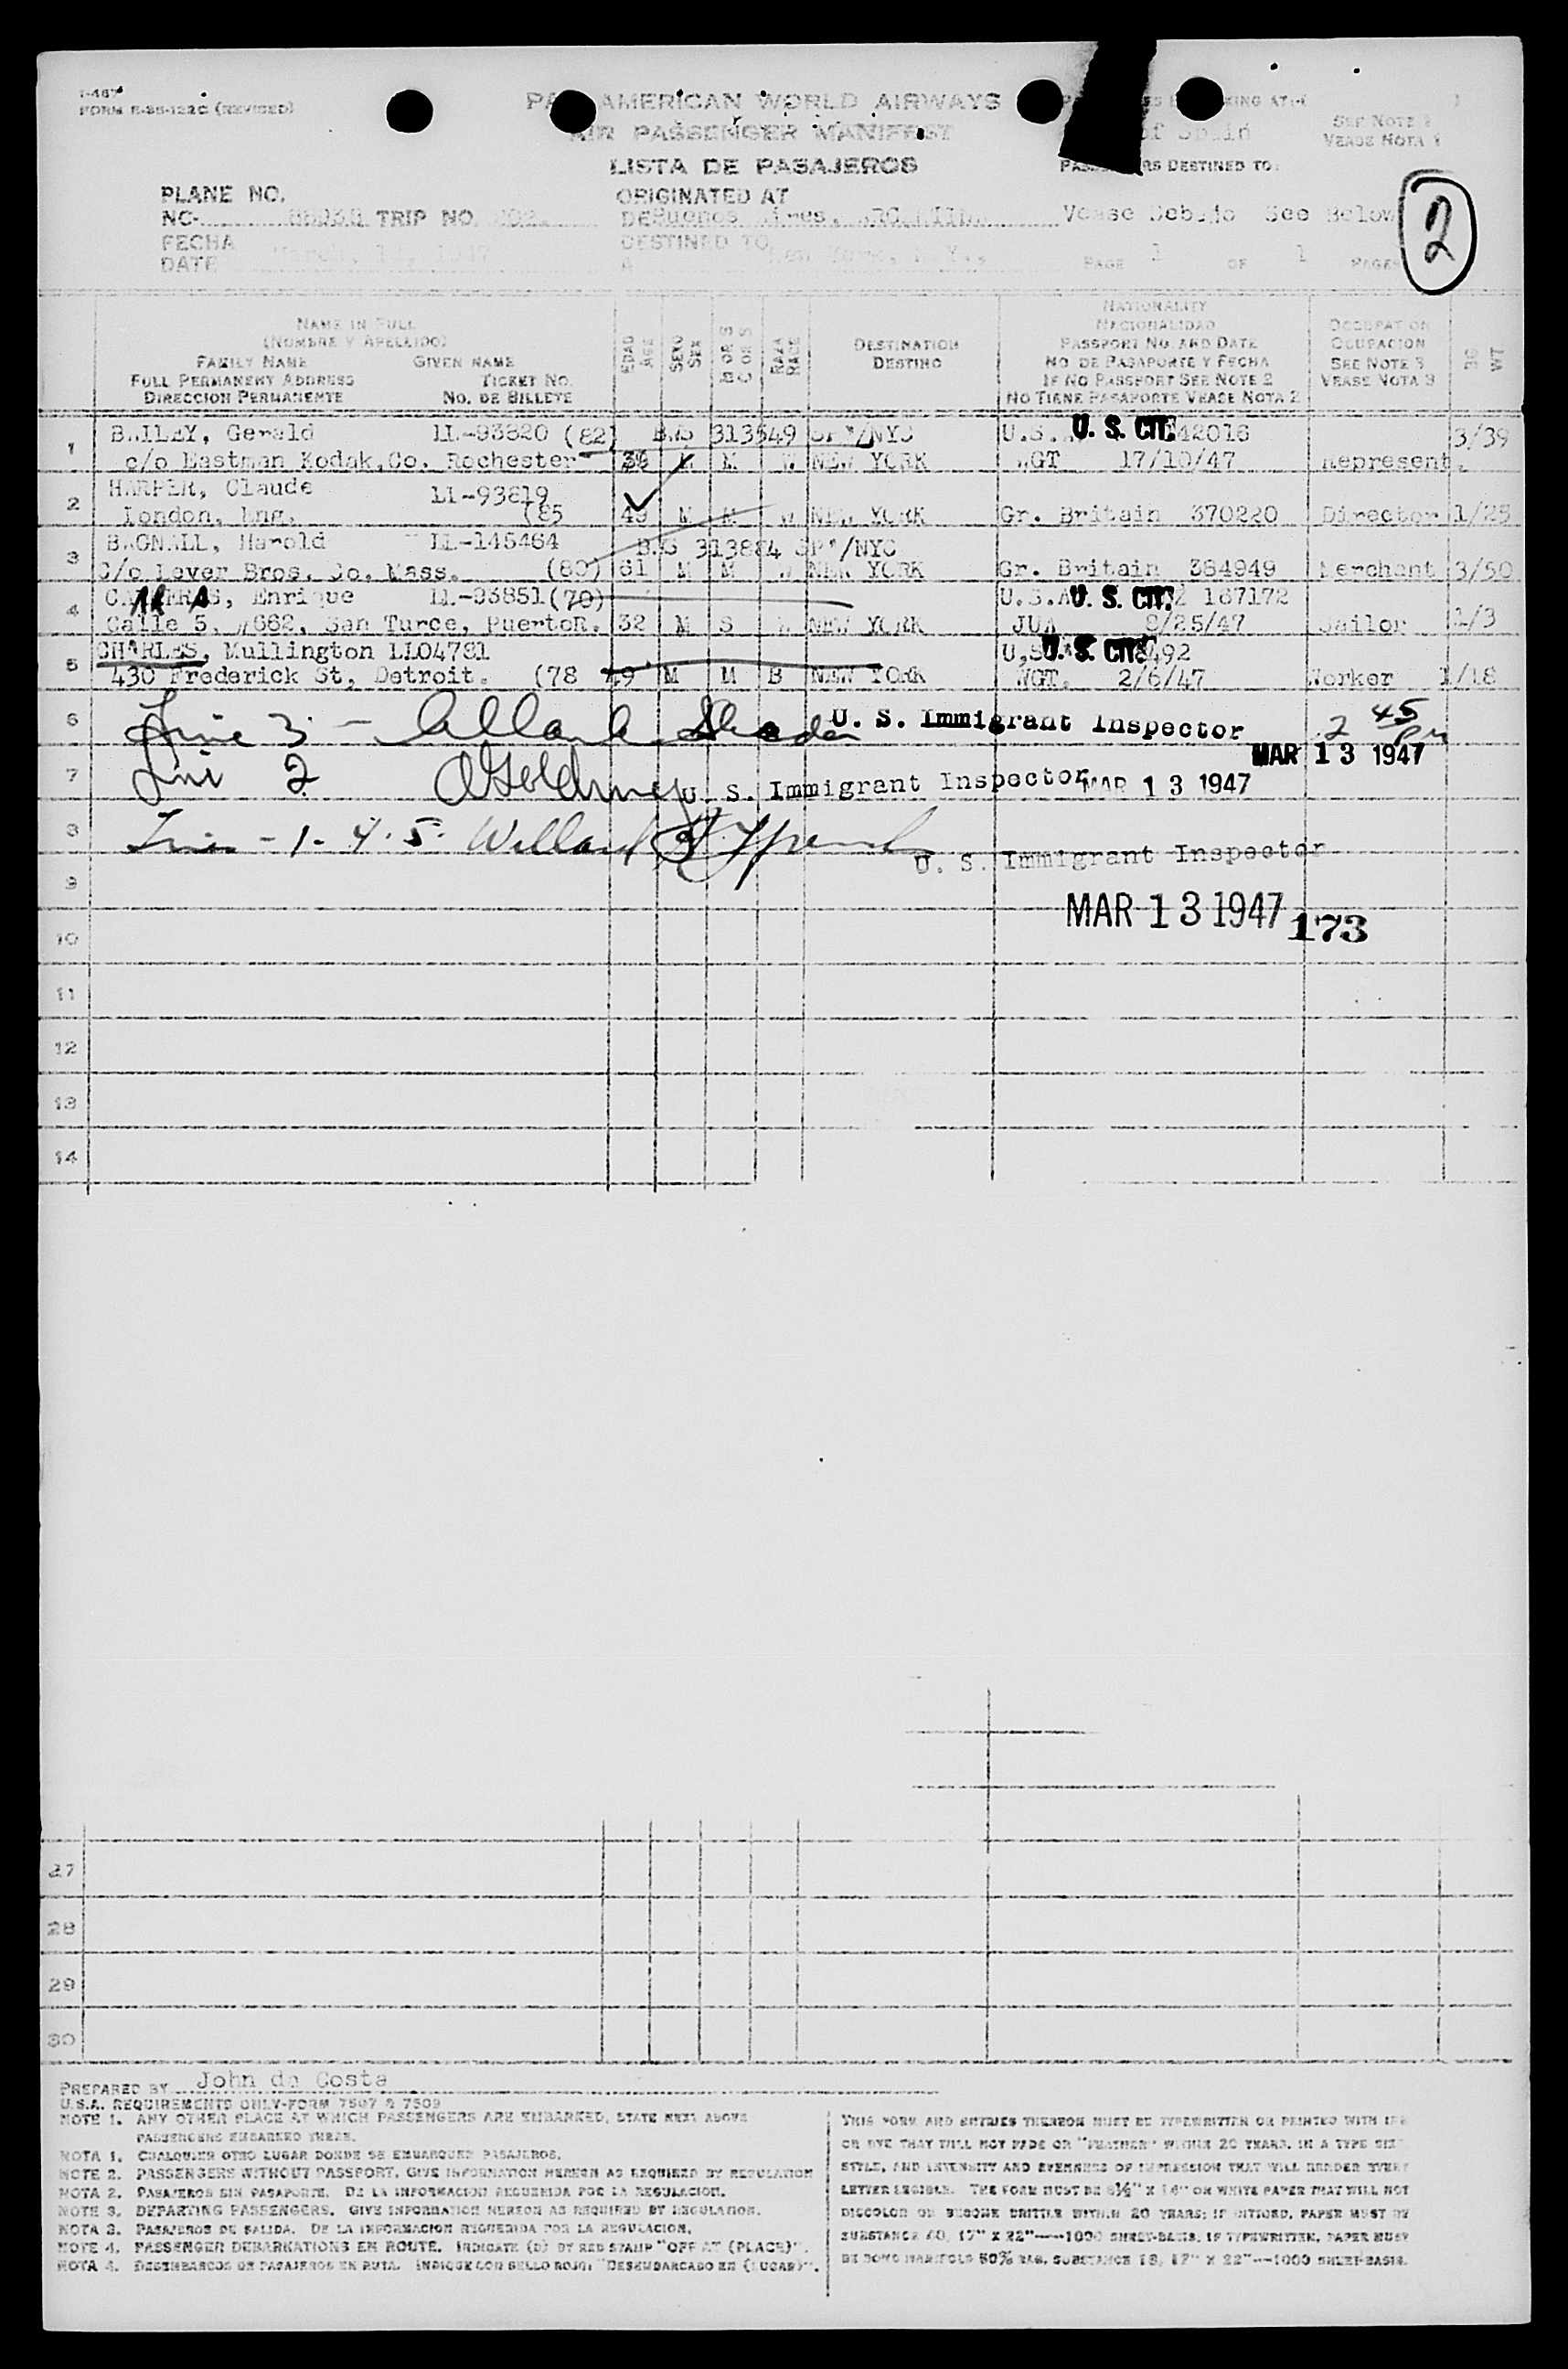 FORM R-35-122C (REVISED)
AMERICAN WORLD AIRWAYS
AIR PASSENGER MANIFEST
LISTA DE PASAJEROS
SEE NOTE
VEASE NOTA 1
DESTINED TO:
PLANE NO.
NC- TRIP NO.
ORIGINATED AT
DE Buenos Aires,
Vease Debajo See Below
2
FECHA
DATE
DESTINED TO
A New York, N.Y.,
PAGE 1 OF 1 PAGES
NAME IN FULL
(NOMBRE Y APELLIDO)
FAMILY NAME GIVEN NAME
FULL PERMANENT ADDRESS TICKET NO.
DIRECCION PERMANENTE NO. DE BILLETE
EDAD AGE
SEXO SEX
RAZA RACE
DESTINATION
DESTINO
NATIONALITY
NACIONALIDAD
PASSPORT NO. AND DATE
NO DE PASAPORTE Y FECHA
IF NO PASSPORT SEE NOTE 2
NO TIENE PASAPORTE VEASE NOTA 2
OCCUPATION
OCUPACION
SEE NOTE 3
VEASE NOTA 3
WT
1 BAILEY, Gerald LL-93820 (82) 313549 /NYC U.S. U. S. CIT. 42016 3/39
c/o Eastman Kodak.Co. Rochester M W NEW YORK WGT 17/10/47 Represent.
2 HARPER, Claude LL-93819
London, Eng. (85 49 M M W NEW YORK Gr. Britain 370220 Director 1/25
3 BAGNALL, Harold LL-145464 313884 /NYC
C/o Lever Bros. Co. Mass. (80) 61 M M W NEW YORK Gr. Britain 384949 Merchant 3/50
4 Enrique LL-93851(70) U.S.A U. S. CIT. 167172
Calle 5, #662, San Turce, PuertoR. 32 M S W NEW YORK JUA 8/25/47 Sailor 1/3
5 CHARLES, Mullington LL04781 U,S U. S. CIT. 492
430 Frederick St, Detroit. (78 49 M M B NEW YORK WGT. 2/6/47 Worker 1/18
6 Line 3 - U. S. Immigrant Inspector 2 45 pm
MAR 13 1947
7 Line 2 U. S. Immigrant Inspector MAR 13 1947
8 Lines - 1 - 4 - 5 - Willard U. S. Immigrant Inspector
9
MAR 13 1947 173
10
11
12
13
14
27
28
29
30
PREPARED BY John da Costa
U.S.A. REQUIREMENTS ONLY-FORM 7507 & 7509
NOTE 1. ANY OTHER PLACE AT WHICH PASSENGERS ARE EMBARKED, STATE NEXT ABOVE
PASSENGERS EMBARKED THERE.
NOTA 1. CUALQUIER OTRO LUGAR DONDE SE EMBARQUEN PASAJEROS.
NOTE 2. PASSENGERS WITHOUT PASSPORT, GIVE INFORMATION HEREON AS REQUIRED BY REGULATION
NOTA 2. PASAJEROS SIN PASAPORTE. DE LA INFORMACION REQUERIDA POR LA REGULACION.
NOTE 3. DEPARTING PASSENGERS. GIVE INFORMATION HEREON AS REQUIRED BY REGULATION.
NOTA 3. PASAJEROS DE SALIDA. DE LA INFORMACION REQUERIDA POR LA REGULACION.
NOTE 4. PASSENGER DEBARKATIONS EN ROUTE. INDICATE (D) BY RED STAMP "OFF AT (PLACE)".
NOTA 4. DESEMBARCOS DE PASAJEROS EN RUTA. INDIQUE CON SELLO ROJO: "DESEMBARCADO EN (LUGAR)".
THIS FORM AND ENTRIES THEREON MUST BE TYPEWRITTEN OR PRINTED WITH INK
OR DYE THAT WILL NOT FADE OR "FEATHER" WITHIN 20 YEARS, IN A TYPE SIZE
STYLE, AND INTENSITY AND EVENNESS OF IMPRESSION THAT WILL RENDER EVERY
LETTER LEGIBLE. THE FORM MUST BE 8½" X 14" ON WHITE PAPER THAT WILL NOT
DISCOLOR OR BECOME BRITTLE WITHIN 20 YEARS; IF DITTOED, PAPER MUST BE
SUBSTANCE 40, 17" X 22"--1000 SHEET-BASIS. IF TYPEWRITTEN, PAPER MUST
BE BOND MANIFOLD 50% RAG, SUBSTANCE 18, 17" X 22"--1000 SHEET-BASIS.